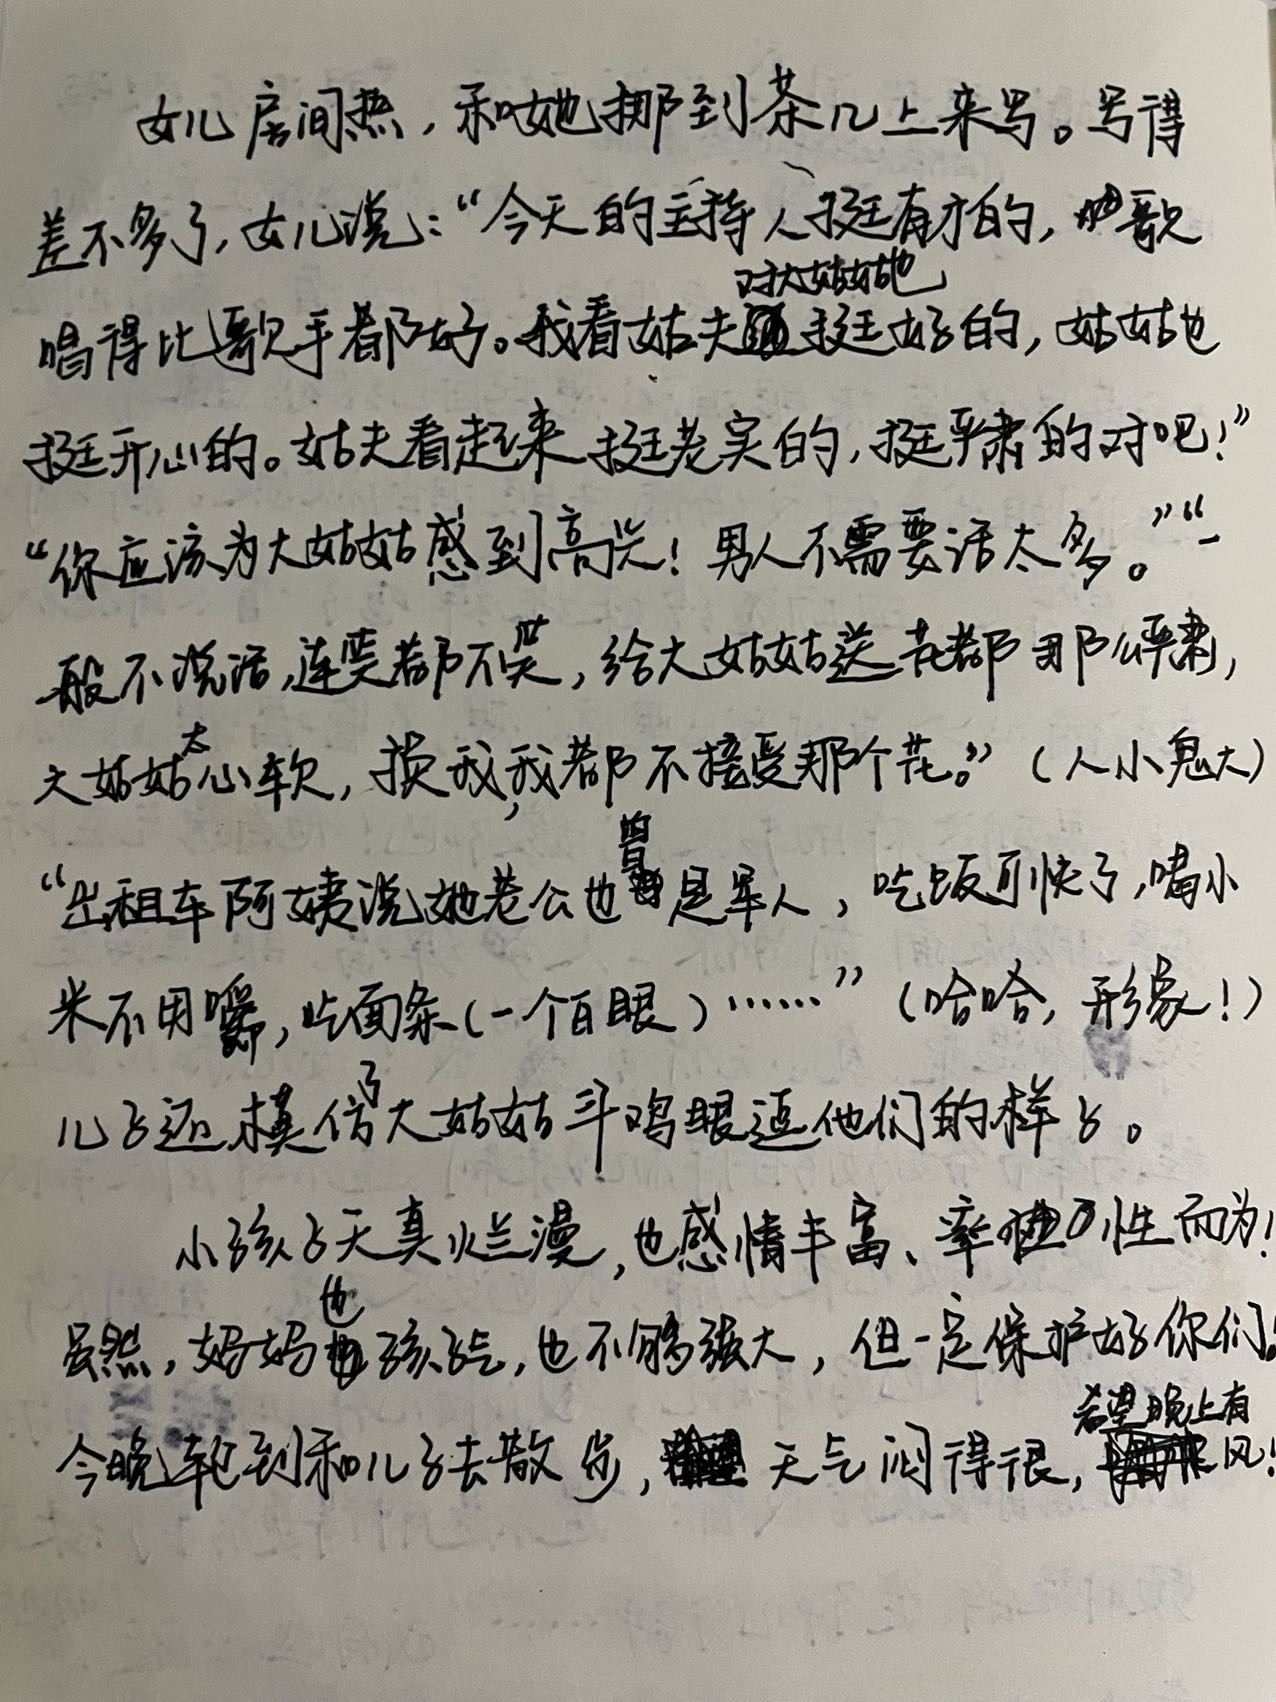 女儿房间热，和她挪到茶几上来写。写得
差不多了，女儿说：“今天的主持人挺有才的，歌
唱得比歌手都好。我看姑夫对大姑姑也挺好的，姑姑也
挺开心的。姑夫看起来挺老实的，挺严肃的对吧！”
“你应该为大姑姑感到高兴！男人不需要话太多。”“一
般不说话，连笑都不笑，给大姑姑送花都那么严肃，
大姑姑太心软，换我，我都不接受那个花。”（人小鬼大）
“出租车阿姨说她老公也曾是军人，吃饭可快了，喝小
米不用嚼，吃面条（一个白眼）……”（哈哈，形象！）
儿子还模仿了大姑姑斗鸡眼逗他们的样子。
小孩子天真烂漫，也感情丰富、率性而为！
虽然，妈妈也孩子气，也不够强大，但一定保护好你们！
今晚轮到和儿子去散步，天气闷得很，希望晚上有风！